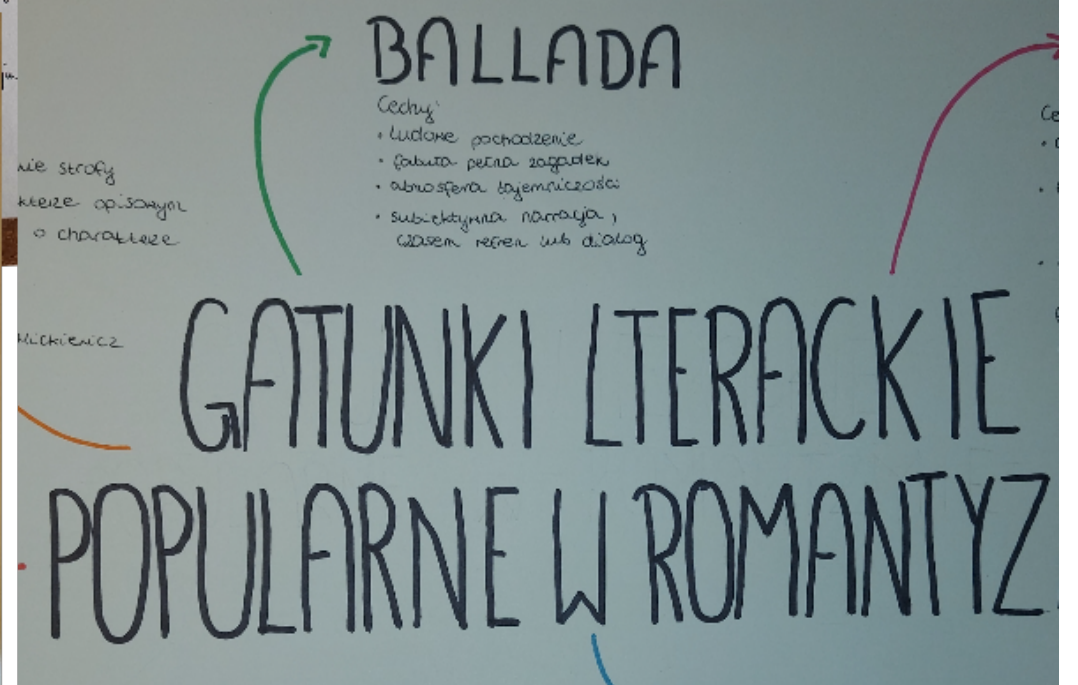 BALLADA
Cechy:
• ludowe pochodzenie
• fabuła pełna zagadek
• atmosfera tajemniczości
• subiektywna narracja,
czasem refren lub dialog
nie strofy
kterze opisowym
o charakterze
Mickiewicz
Ce
GATUNKI LTERACKIE
POPULARNE W ROMANTYZ